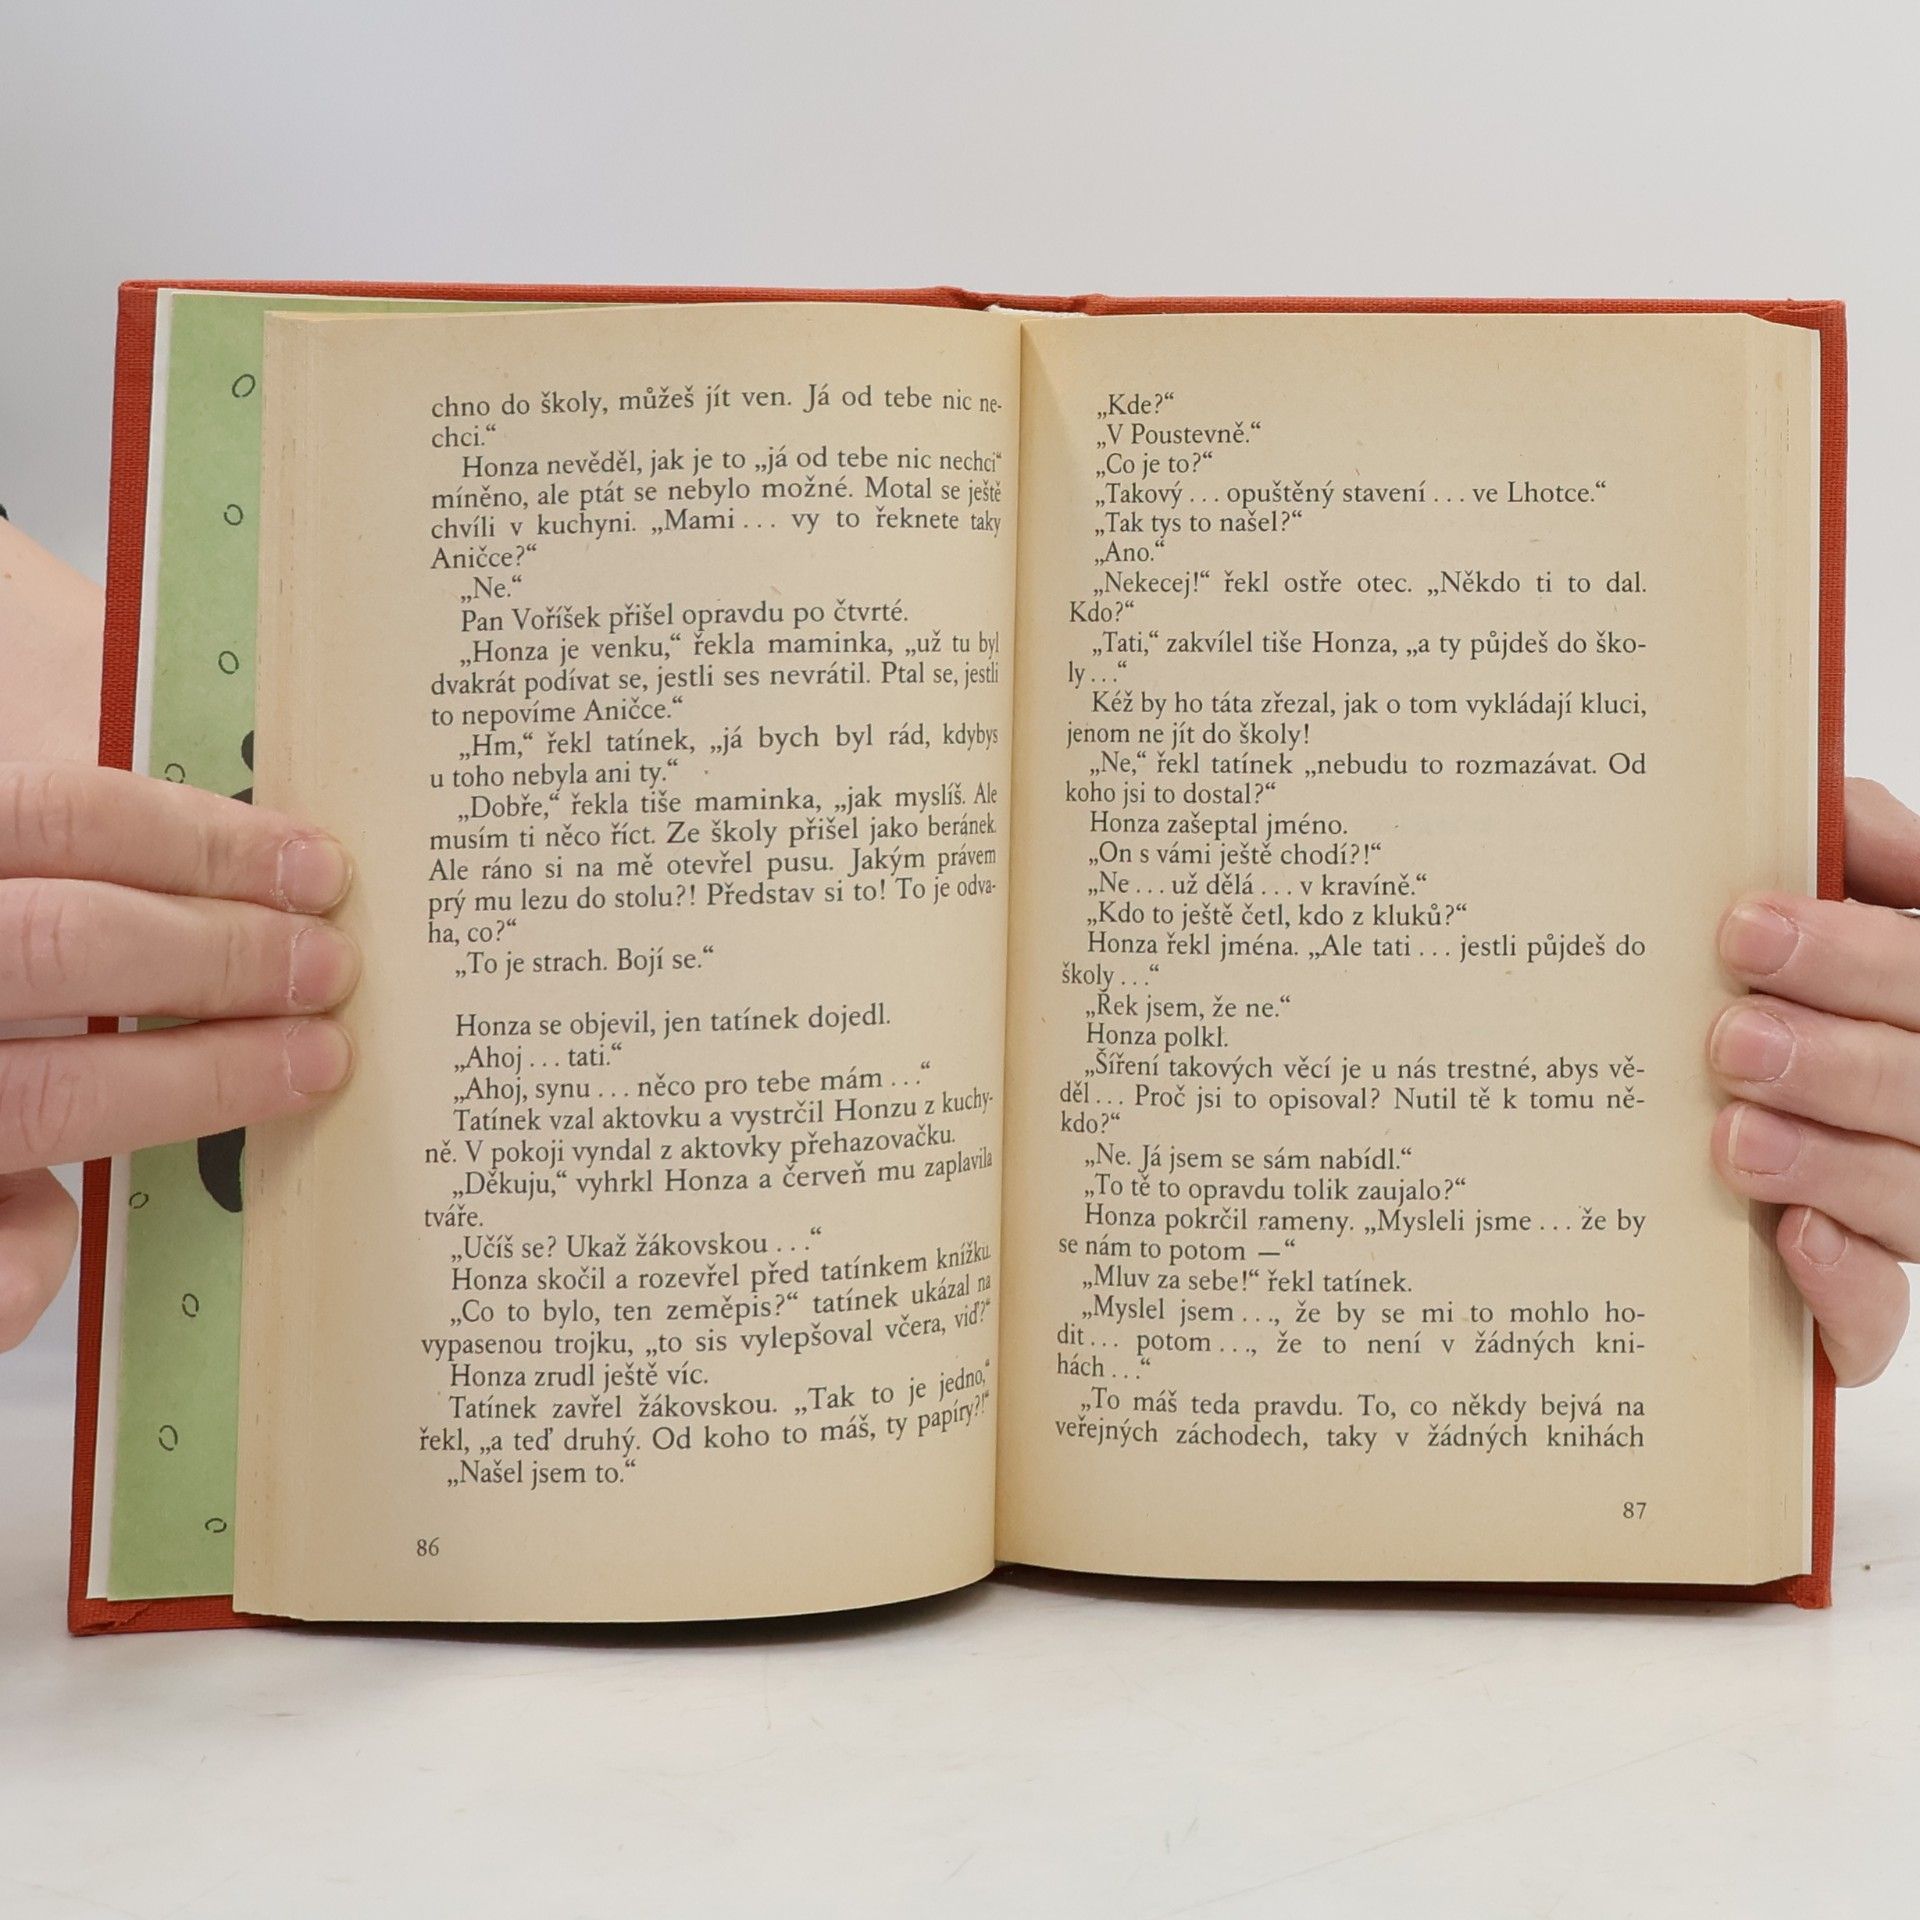 chno do školy, můžeš jít ven. Já od tebe nic ne-
chci.“
Honza nevěděl, jak je to „já od tebe nic nechci“
míněno, ale ptát se nebylo možné. Motal se ještě
chvíli v kuchyni. „Mami ... vy to řeknete taky
Aničce?“
„Ne.“
Pan Voříšek přišel opravdu po čtvrté.
„Honza je venku,“ řekla maminka, „už tu byl
dvakrát podívat se, jestli ses nevrátil. Ptal se, jestli
to nepovíme Aničce.“
„Hm,“ řekl tatínek, „já bych byl rád, kdybys
u toho nebyla ani ty.“
„Dobře,“ řekla tiše maminka, „jak myslíš. Ale
musím ti něco říct. Ze školy přišel jako beránek.
Ale ráno si na mě otevřel pusu. Jakým právem
prý mu lezu do stolu?! Představ si to! To je odva-
ha, co?“
„To je strach. Bojí se.“
Honza se objevil, jen tatínek dojedl.
„Ahoj ... tati.“
„Ahoj, synu ... něco pro tebe mám ...“
Tatínek vzal aktovku a vystrčil Honzu z kuchy-
ně. V pokoji vyndal z aktovky přehazovačku.
„Děkuju,“ vyhrkl Honza a červeň mu zaplavila
tváře.
„Učíš se? Ukaž žákovskou ...“
Honza skočil a rozevřel před tatínkem knížku.
„Co to bylo, ten zeměpis?“ tatínek ukázal na
vypasenou trojku, „to sis vylepšoval včera, viď?“
Honza zrudl ještě víc.
Tatínek zavřel žákovskou. „Tak to je jedno,“
řekl, „a teď druhý. Od koho to máš, ty papíry?!“
„Našel jsem to.“
86
„Kde?“
„V Poustevně.“
„Co je to?“
„Takový ... opuštěný stavení ... ve Lhotce.“
„Tak tys to našel?“
„Ano.“
„Nekecej!“ řekl ostře otec. „Někdo ti to dal.
Kdo?“
„Tati,“ zakvílel tiše Honza, „a ty půjdeš do ško-
ly ...“
Kéž by ho táta zřezal, jak o tom vykládají kluci,
jenom ne jít do školy!
„Ne,“ řekl tatínek „nebudu to rozmazávat. Od
koho jsi to dostal?“
Honza zašeptal jméno.
„On s vámi ještě chodí?!“
„Ne ... už dělá ... v kravíně.“
„Kdo to ještě četl, kdo z kluků?“
Honza řekl jména. „Ale tati ... jestli půjdeš do
školy ...“
„Řek jsem, že ne.“
Honza polkl.
„Šíření takových věcí je u nás trestné, abys vě-
děl ... Proč jsi to opisoval? Nutil tě k tomu ně-
kdo?“
„Ne. Já jsem se sám nabídl.“
„To tě to opravdu tolik zaujalo?“
Honza pokrčil rameny. „Mysleli jsme ... že by
se nám to potom —“
„Mluv za sebe!“ řekl tatínek.
„Myslel jsem ..., že by se mi to mohlo ho-
dit ... potom ..., že to není v žádných kni-
hách ...“
„To máš teda pravdu. To, co někdy bejvá na
veřejných záchodech, taky v žádných knihách
87